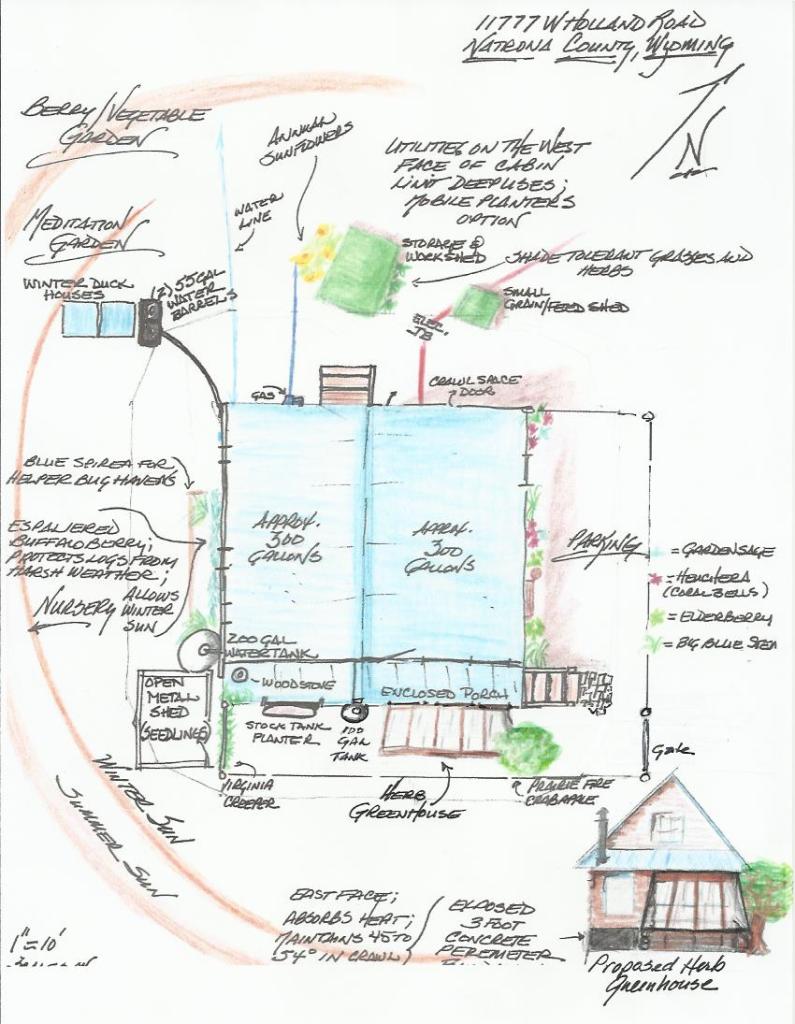 11777 W HOLLAND ROAD
NATRONA COUNTY, WYOMING
N
BERRY/VEGETABLE
GARDEN
ANNUAL
SUNFLOWERS
UTILITIES ON THE WEST
FACE OF CABIN
LIMIT DEEP USES;
MOBILE PLANTERS
OPTION
WATER
LINE
MEDITATION
GARDEN
STORAGE &
WORKSHED
SHADE TOLERANT GRASSES AND
HERBS
WINTER DUCK
HOUSES
(2) 55 GAL
WATER
BARRELS
SMALL
GRAIN/FEED SHED
ELEC.
GAS
CRAWL SPACE
DOOR
BLUE SPIREA FOR
HELPER BUG HAVENS
ESPALIERED
BUFFALOBERRY;
PROTECTS LOGS FROM
HARSH WEATHER;
ALLOWS
WINTER
SUN
NURSERY
APPROX.
300
GALLONS
APPROX.
300
GALLONS
PARKING
= GARDEN SAGE
= HEUCHERA
(CORAL BELLS)
= ELDERBERRY
= BIG BLUE STEM
200 GAL
WATER TANK
WOODSTOVE
ENCLOSED PORCH
OPEN
METAL
SHED
(SEEDLINGS)
STOCK TANK
PLANTER
100
GAL
TANK
GATE
VIRGINIA
CREEPER
HERB
GREENHOUSE
PRAIRIE FIRE
CRABAPPLE
WINTER SUN
SUMMER SUN
EAST FACE;
ABSORBS HEAT;
MAINTAINS 45 TO
54° IN CRAWL
EXPOSED
3 FOOT
CONCRETE
PERIMETER
1"=10'
Proposed Herb
Greenhouse